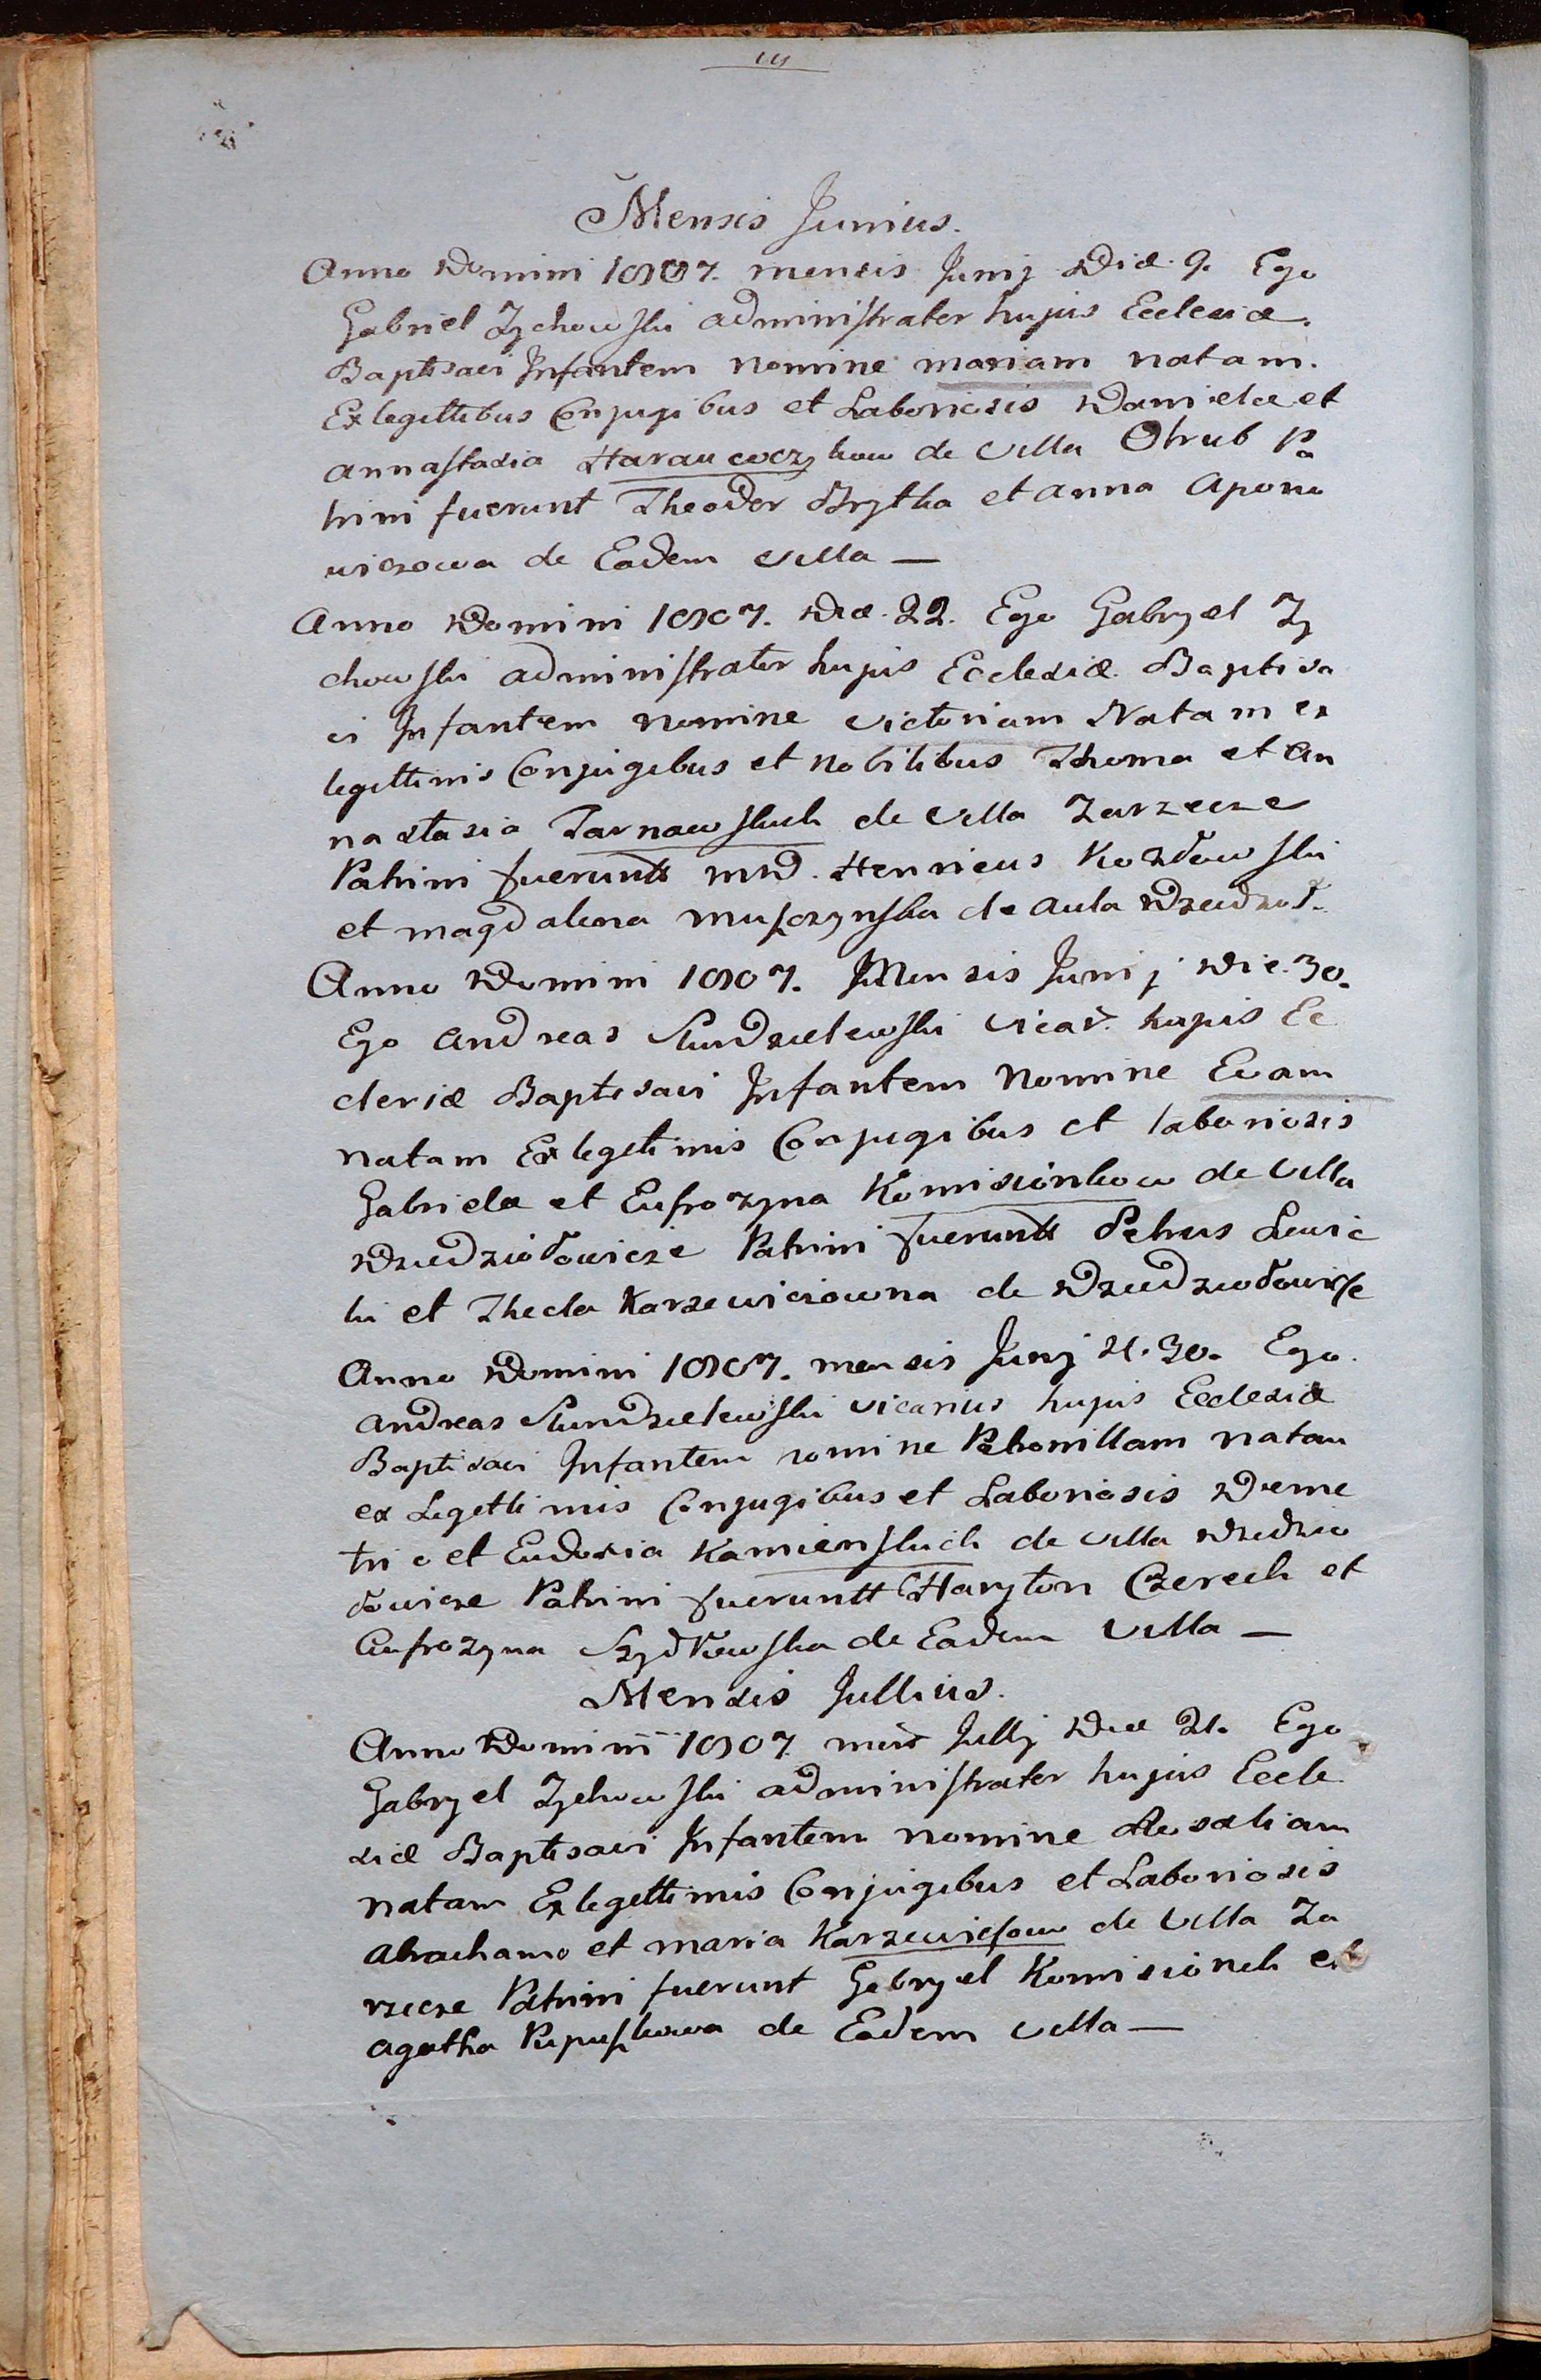 Mensis Junius.
Anno Domini 1807. mensis Junij Diæ 9. Ego
Gabriel Zychowski administrator hujus Ecclesiæ.
Baptisavi Infantem Nomine mariam natam.
Ex legittibus Conjugibus et Laboriosis Daniele et
annastasia Haraucoczykow de Villa Otrub Pa
trini fuerunt Theodor Brytka et anna Apono
wiczowa de Eadem Villa —
Anno Domini 1807. Diæ. 22. Ego Gabryel Zy
chowski administrator hujus Ecclesiæ Baptisa
vi Infantem nomine Victoriam Natam ex
legittimis Conjugibus et Nobilibus Thoma et An
nastasia Tarnawskich de Villa Zarzecze
Patrini fuerunt MD. Henricus Kozłowski
et magdalena muszynska de aula Dziedzioł.
Anno Domini 1807. Mensis Junij Die. 30.
Ego Andreas Kundzielewski Vicar. hujus Ec
clesiæ Baptisavi Infantem Nomine Evam
natam Ex legitimis Conjugibus et laboriosis
Gabriele et Eufrozyna Komisionkow de Villa
Dziedziołowicze Patrini fuerunt Petrus Lewic
ki et Thecla Karzewiciowna de Dziedziołowicze
Anno Domini 1807. mensis Junij d. 30. Ego
Andreas Kundzielewski Vicarius hujus Ecclesiæ
Baptisavi Infantem nomine Petronillam natam
ex Legittimis Conjugibus et Laboriosis Deme
trio et Eudoxia Kamienskich de Villa Dziedzio
łowicze Patrini fueruntt Haryton Czerech et
Eufrozyna Szydłowska de Eadem Villa —
Mensis Jullius.
Anno Domini 1807. mens Jullij Diæ 21. Ego
Gabryel Zychowski administrator hujus Eccle
siæ Baptisavi Infantem nomine Rosaliam
natam Ex legittimis Conjugibus et Laboriosis
Abrachamo et maria Karzewiczow de Villa Za
rzecze Patrini fuerunt Gabryel Komisionek et
agatha Pupuszkowa de Eadem Villa —